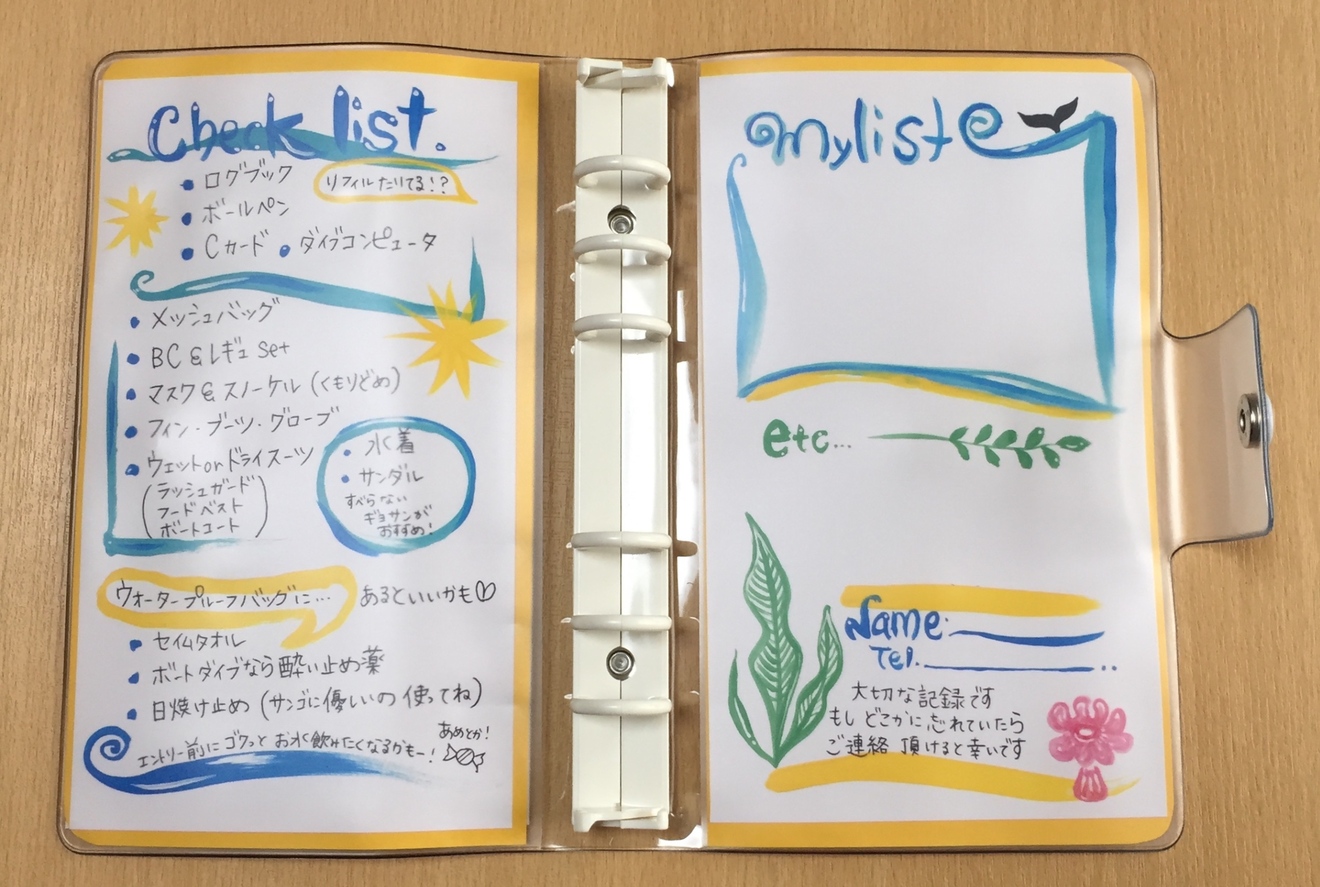 Check list.
・ログブック
リフィルたりてる!?
・ボールペン
・Cカード ・ダイブコンピュータ
・メッシュバッグ
・BC&レギュ set
・マスク&スノーケル(くもりどめ)
・フィン・ブーツ・グローブ
・ウェットorドライスーツ
(ラッシュガード
フードベスト
ボートコート)
・水着
・サンダル
すべらない
ギョサンが
おすすめ!
ウォータープルーフバッグに…
あるといいかも♡
・セイムタオル
・ボートダイブなら酔い止め薬
・日焼け止め(サンゴに優しいの使ってね)
エントリー前にゴクっとお水飲みたくなるかもー!
あめとか!
my list
etc...
Name.
Tel.
大切な記録です
もしどこかに忘れていたら
ご連絡頂けると幸いです